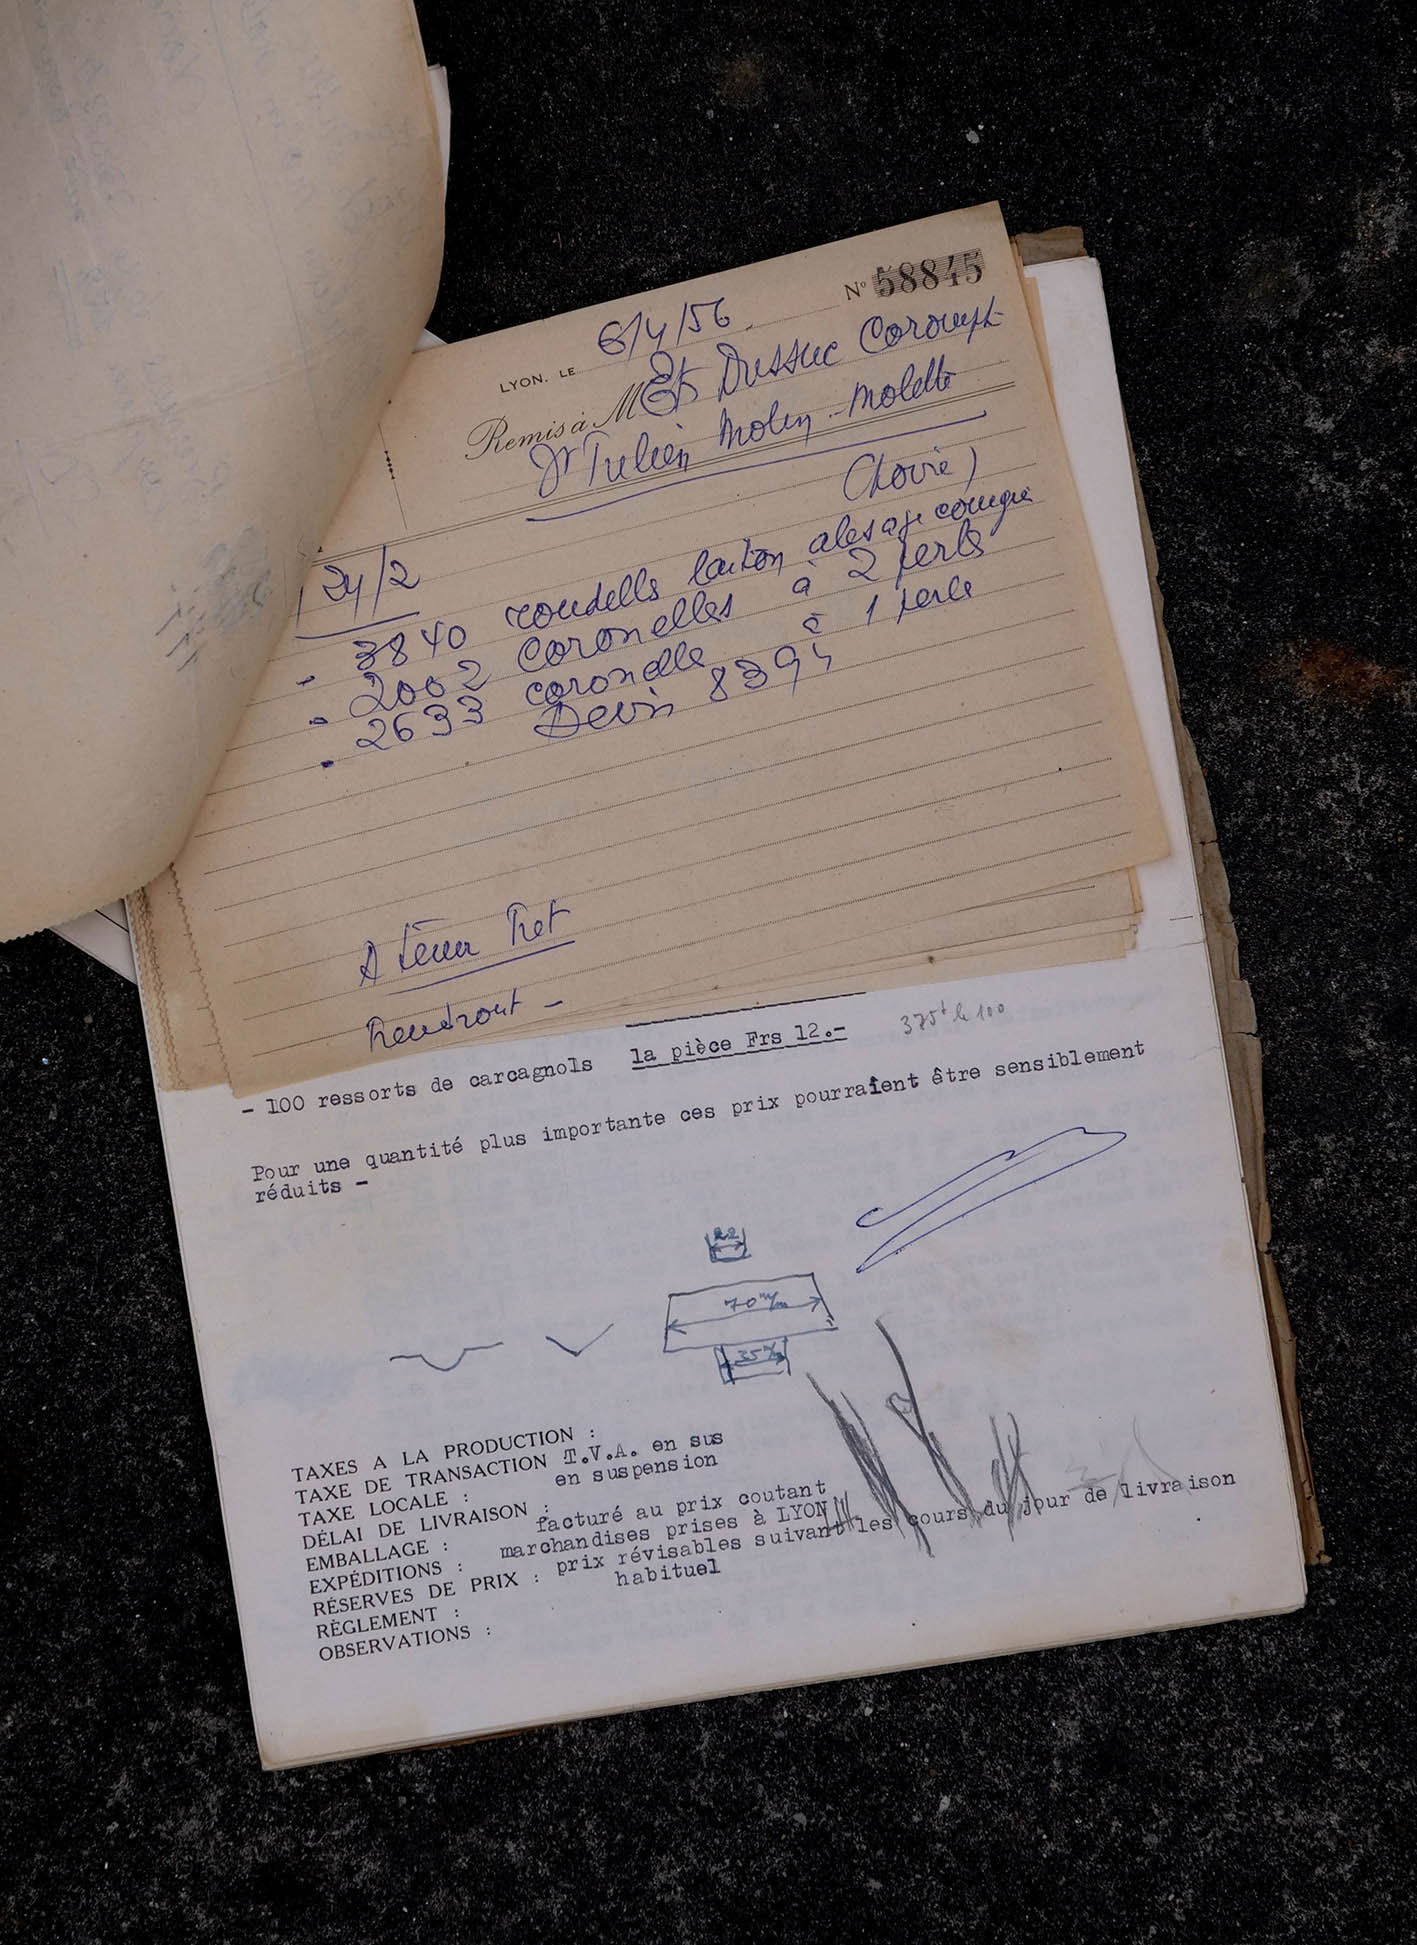 Nº 58845
LYON, LE 6/4/56
Remis à M Ets Dussuc
St Julien Molin-Molette
24/2
- 3840 rondelles laiton alesage
- 2002 coronelles à 2 perles
- 2633 coronelle à 1 perle
Devis 8394
A
- 100 ressorts de carcagnols la pièce Frs 12.-
375f le 100
Pour une quantité plus importante ces prix pourraient être sensiblement
réduits -
22
70 m/m
35 m/m
TAXES A LA PRODUCTION :
TAXE DE TRANSACTION T.V.A. en sus
TAXE LOCALE : en suspension
DÉLAI DE LIVRAISON :
EMBALLAGE : facturé au prix coutant
EXPÉDITIONS : marchandises prises à LYON
RÉSERVES DE PRIX : prix révisables suivant les cours du jour de livraison
RÈGLEMENT : habituel
OBSERVATIONS :